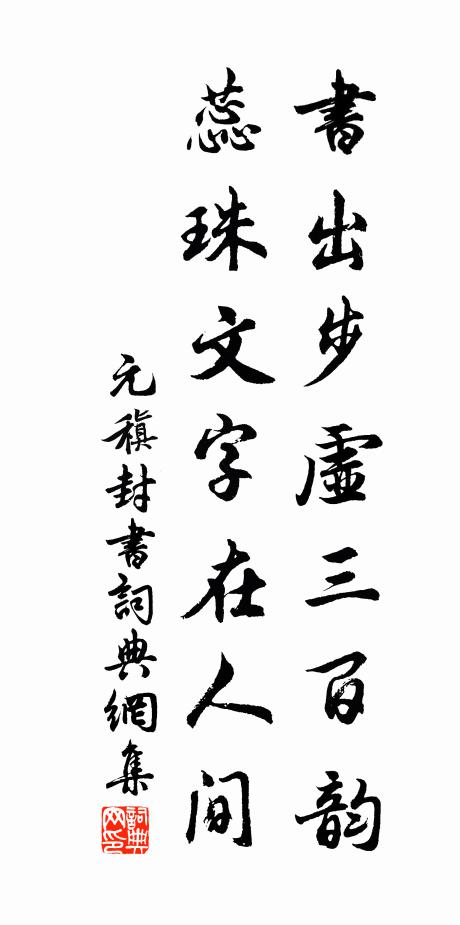 書出步虛三百韵
蕊珠文字在人间
元稹封書詞典網集
詞典網印